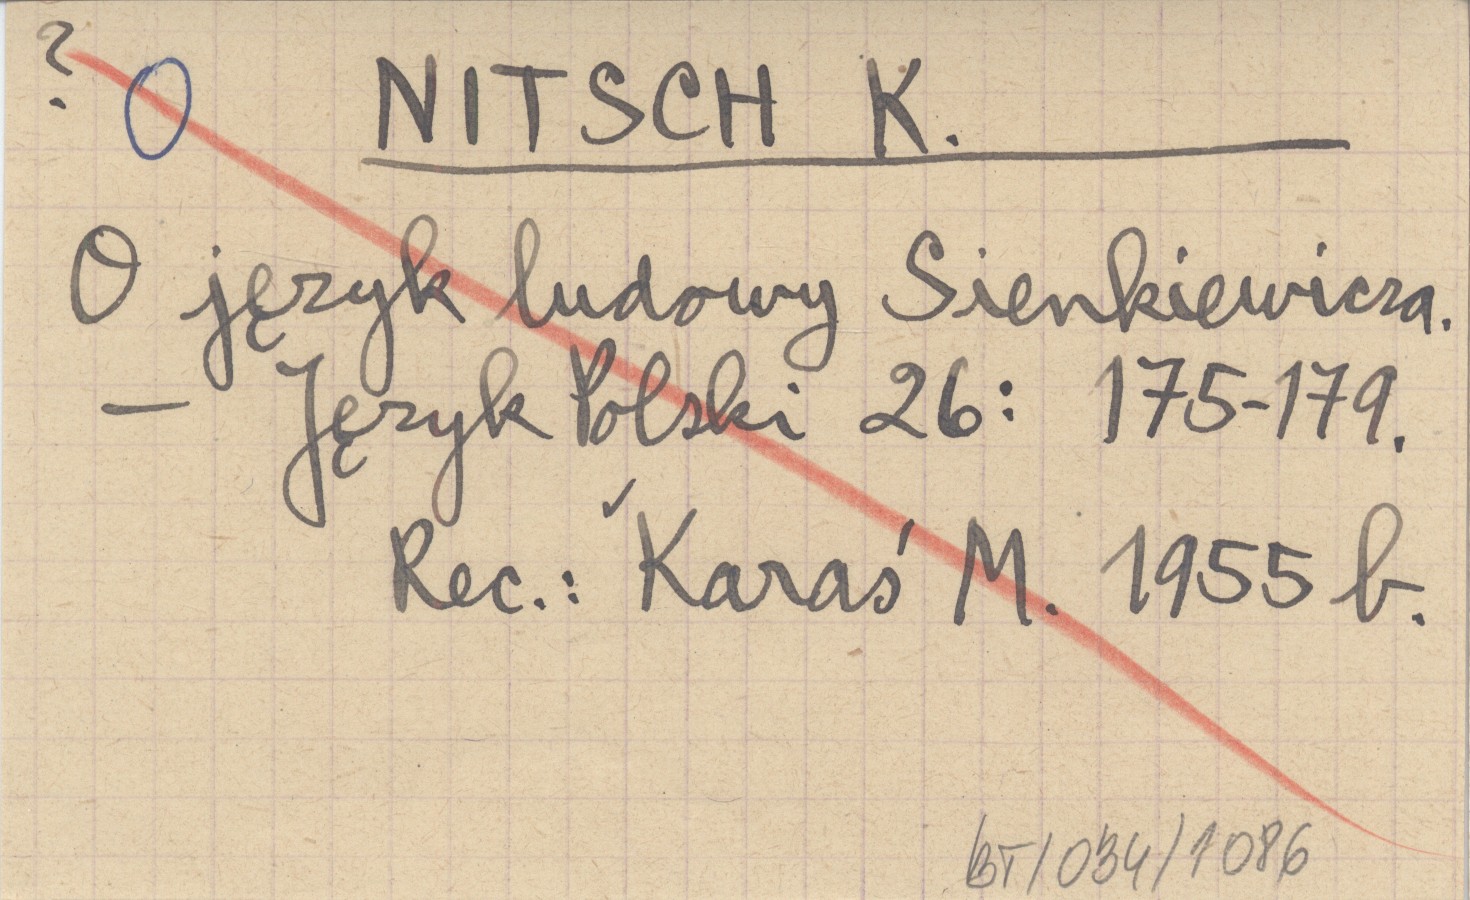 ? O NITSCH K.
O język ludowy Sienkiewicza.
— Język Polski 26: 175-179.
Rec.: Karaś M. 1955 b.
BT/034/1086